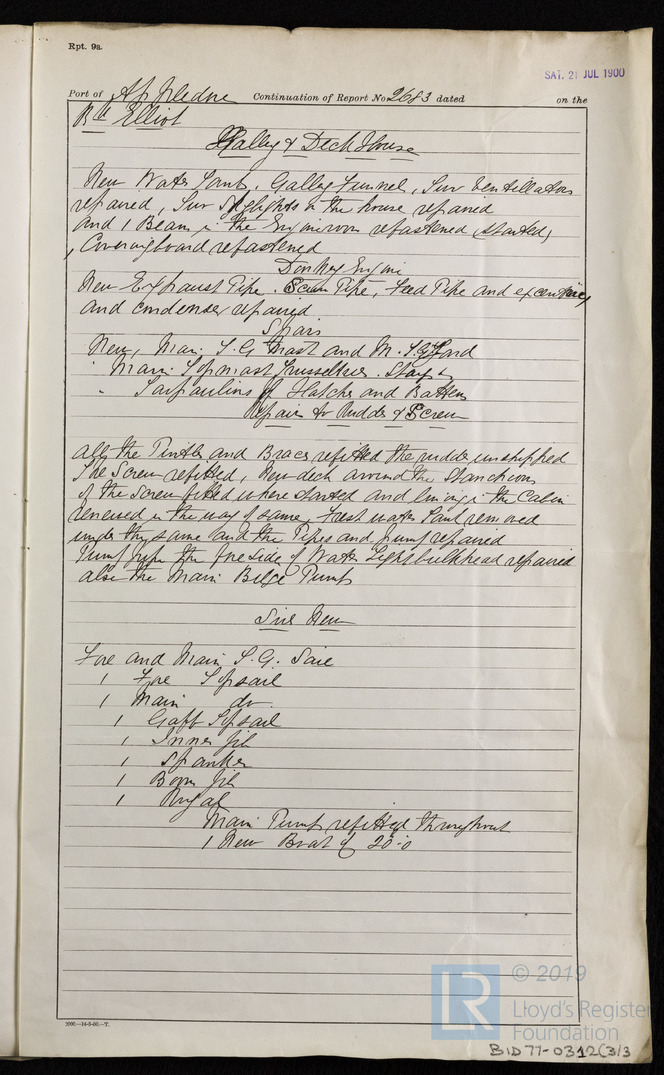 Rpt. 9a.
SAT. 21 JUL 1900
Port of Appledore Continuation of Report No 2683 dated on the
Elliot
Galley & Deck House
New Water Tank, Galley Funnel, Ventillators
repaired, Skylights in the house repaired
and 1 Beam in the Engineroom refastened (started)
Coveringboard refastened
Donkey Engine
New Exhaust Pipe. Pipe, Feed Pipe and
and condenser repaired
Spars
New, Main T.G. Mast and M. T.G. Yard
" Main Topmast Stays &
" Tarpaulins of Hatches and Battens
Repairs to Rudder & Screw
All the Pintles and Braces refitted the rudder unshipped
The Screw refitted, New deck around the Stanchions
of the Screw fitted where started and lining in the Cabin
renewed in the way of same, Fresh water Tank removed
under the same and the Pipes and pump repaired
Pump pipe the foreside of Water Tight bulkhead repaired
also the Main Bilge Pump
New
Fore and Main T.G. Sail
1 Fore Topsail
1 Main do.
1 Gaff Topsail
1 Inner Jib
1 Spanker
1 Boom Jib
1 Royal
Main Pump refitted throughout
1 New Boat of 20.0
2000.—14-5-00.—T.
LR
© 2019
Lloyd's Register
Foundation
BID77-0312(3/3